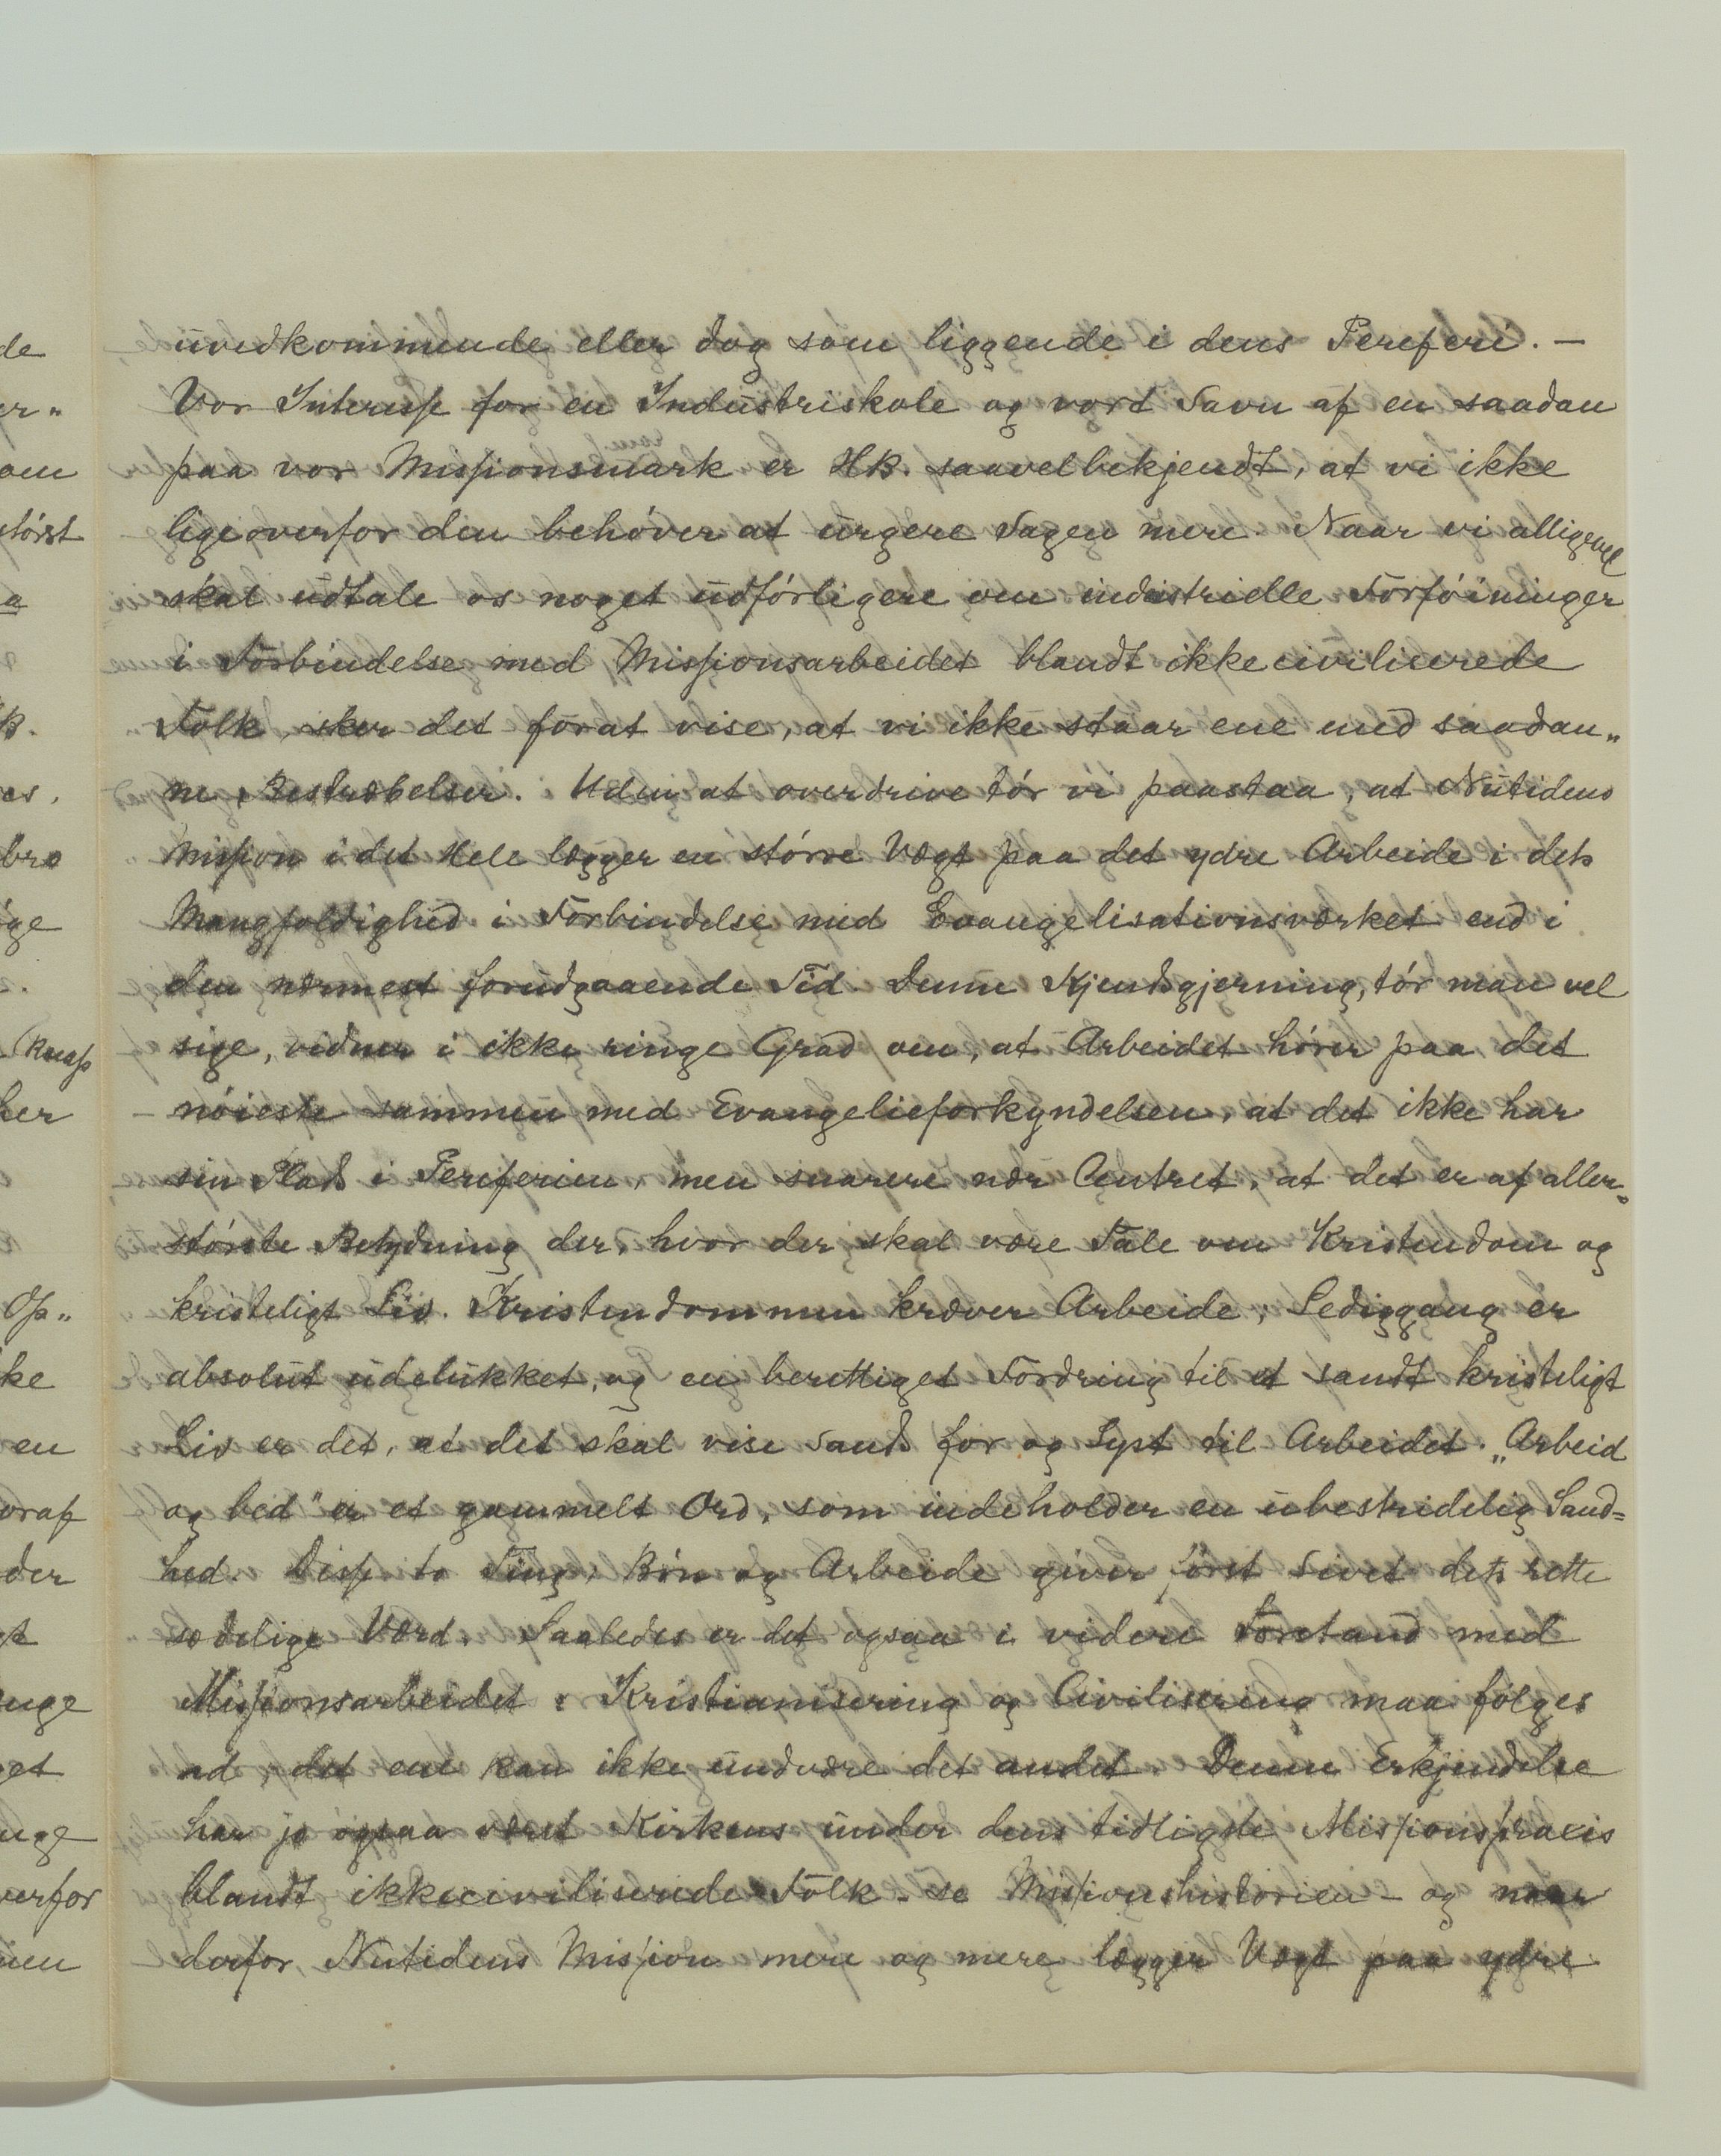 uvedkommende eller dog som liggende i dens Periferi. –
Vor Interesse for en Industriskole og vort Savn af en saadan
paa vor Missionsmark er HB. saavelbekjendt, at vi ikke
ligeoverfor den behöver at urgere Sagen mere. Naar vi alligevel
skal udtale os noget udförligere om industrielle Forföininger
i Forbindelse med Missionsarbeidet blandt ikkeciviliserede
Folk, sker det forat vise, at vi ikke staar ene med saadan„
ne Bestræbelser. Uden at overdrive tör vi paastaa, at Nutidens
Mission i det Hele lægger en större Vægt paa det ydre Arbeide i dets
Mangfoldighed i Forbindelse med Evangelisationsværket end i
den nærmest forudgaaende Tid. Denne Kjendsgjerning, tör man vel
sige, vidner i ikke ringe Grad om, at Arbeidet hörer paa det
nöieste sammen med Evangelieforkyndelsen, at det ikke har
sin Plads i Periferien, men snarere nær Centret, at det er af aller„
störste Betydning der, hvor der skal være Tale om Kristendom og
kristeligt Liv. Kristendommen kræver Arbeide, Lediggang er
absolut udelukket, og en berettiget Fordring til et sandt kristeligt
Liv er det, at det skal vise Sands for og Lyst til Arbeidet. „Arbeid
og bed" er et gammelt Ord, som indeholder en ubestridelig Sand=
hed. Disse to Ting, Bön og Arbeide giver först Livet dets rette
sædelige Værd. Saaledes er det ogsaa i videre Forstand med
Missionsarbeidet: Kristianisering og Civilisering maa fölges
ad, det ene kan ikke undvære det andet. Denne Erkjendelse
har jo ogsaa været Kirkens under dens tidligste Missionspraxis
blandt ikkeciviliserede Folk – se Missionshistorien – og naar
derfor Nutidens Mission mere og mere lægger Vægt paa ydre